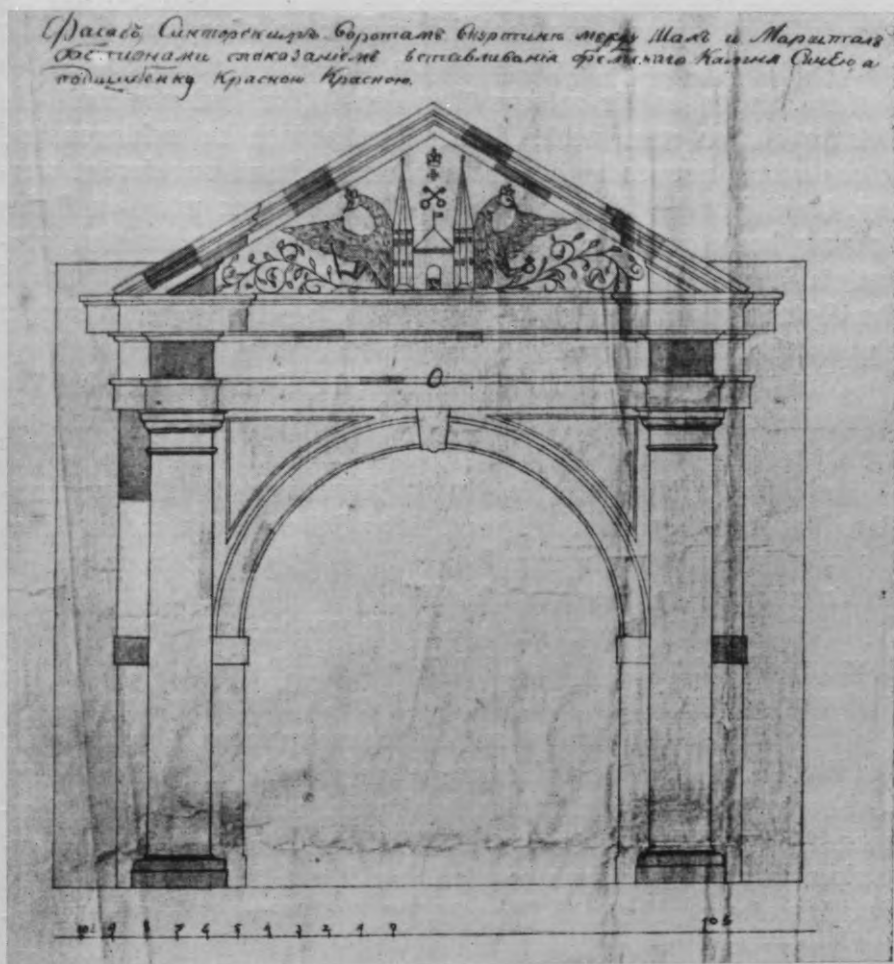 Фасадъ Синторскимъ Воротамъ вкуртинѣ между Шалъ и Маршталъ
бастіонами споказаніемъ вставливанія бремскаго Камня Синею а
Красною Краскою.
9 8 7 6 5 4 3 2 1 0